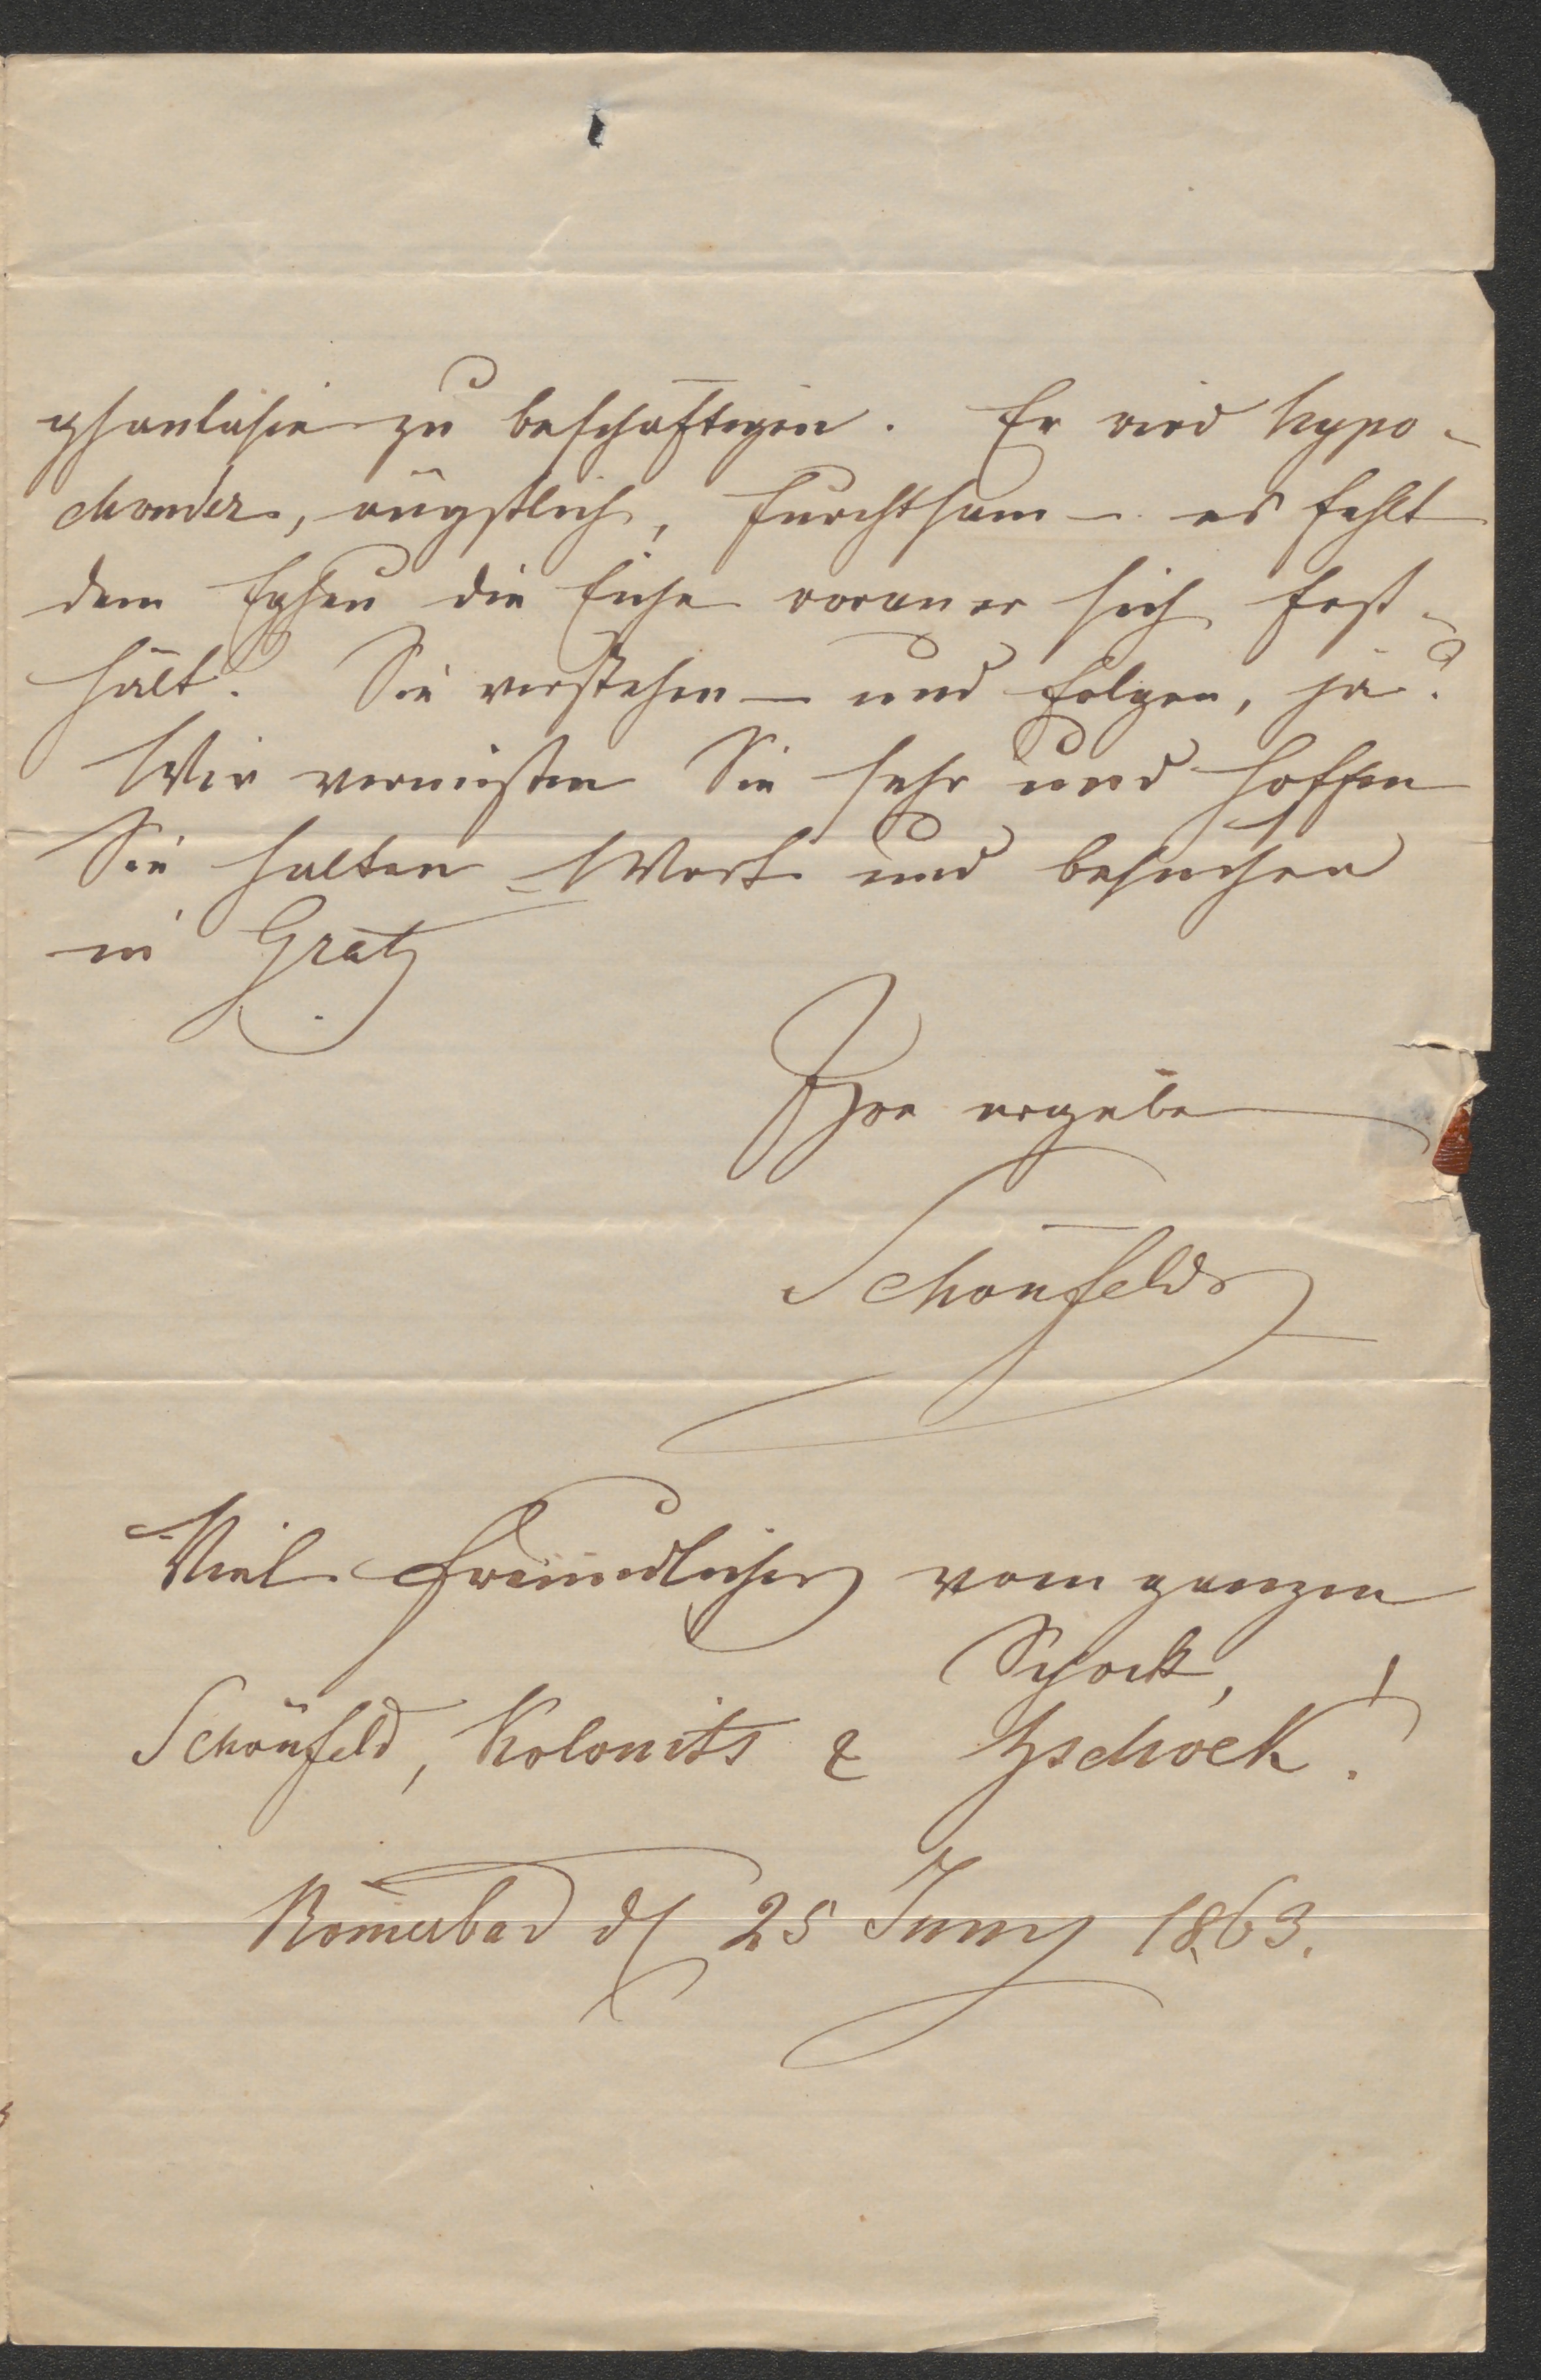 phantasie zu beschäftigen. Er wird hypo-
chonder, ängstlich, furchtsam – es fehlt
dem Epheu die Eiche woran er sich fest-
hält. Sie verstehen – und folgen, ja?
Wir vermißen Sie sehr und hoffen
Sie halten Wort und besuchen
in Gratz
Ihre ergebe
Schönfeld
Viel Freundliches vom ganzen
Schock,
Schönfeld, Kolonits & Zschock!
Römerbad d 25 Juny 1863.